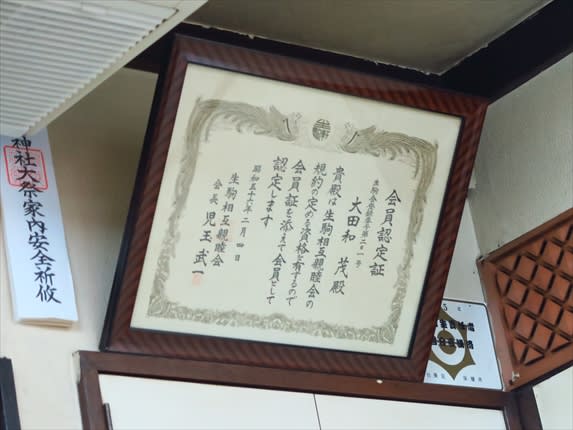 会員認定証
生駒会発錦章第二〇一号
大田和茂殿
貴殿は生駒相互親睦会の
規約の定める資格を有するので
会員証を添えて会員として
認定します
昭和五十六年二月四日
生駒相互親睦会
会長 児玉武一
神社大祭家内安全祈攸